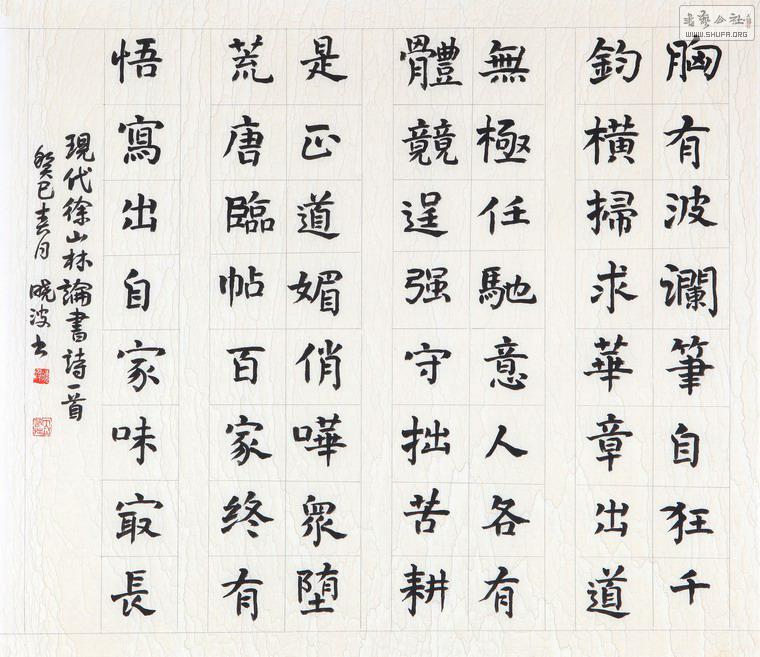 胸有波瀾筆自狂千
鈞横掃求華章出道
無極任馳意人各有
體競逞强守拙苦耕
是正道媚俏嘩衆堕
荒唐臨帖百家終有
悟寫出自家味㝡長
現代徐山林論書詩一首
癸巳春月 曉波书
書藝公社
WWW.SHUFA.ORG